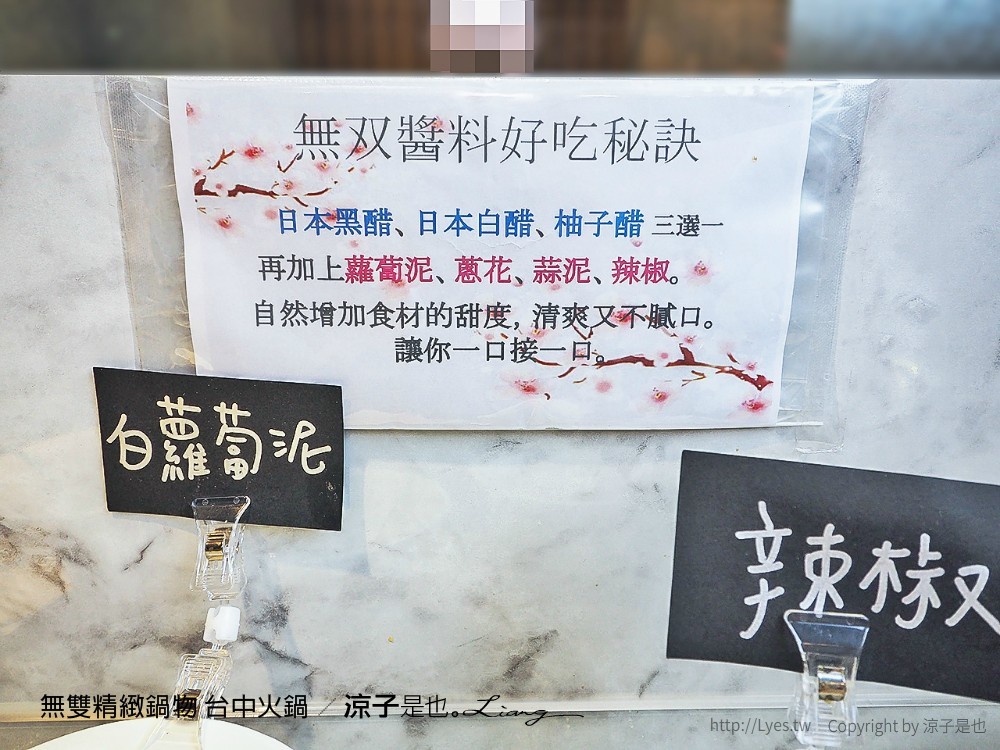 無双醬料好吃秘訣
日本黑醋、日本白醋、柚子醋 三選一
再加上蘿蔔泥、蔥花、蒜泥、辣椒。
自然增加食材的甜度, 清爽又不膩口。
讓你一口接一口。
白蘿蔔泥
辣椒
無雙精緻鍋物 台中火鍋 / 涼子是也。Liang
http://Lyes.tw Copyright by 涼子是也